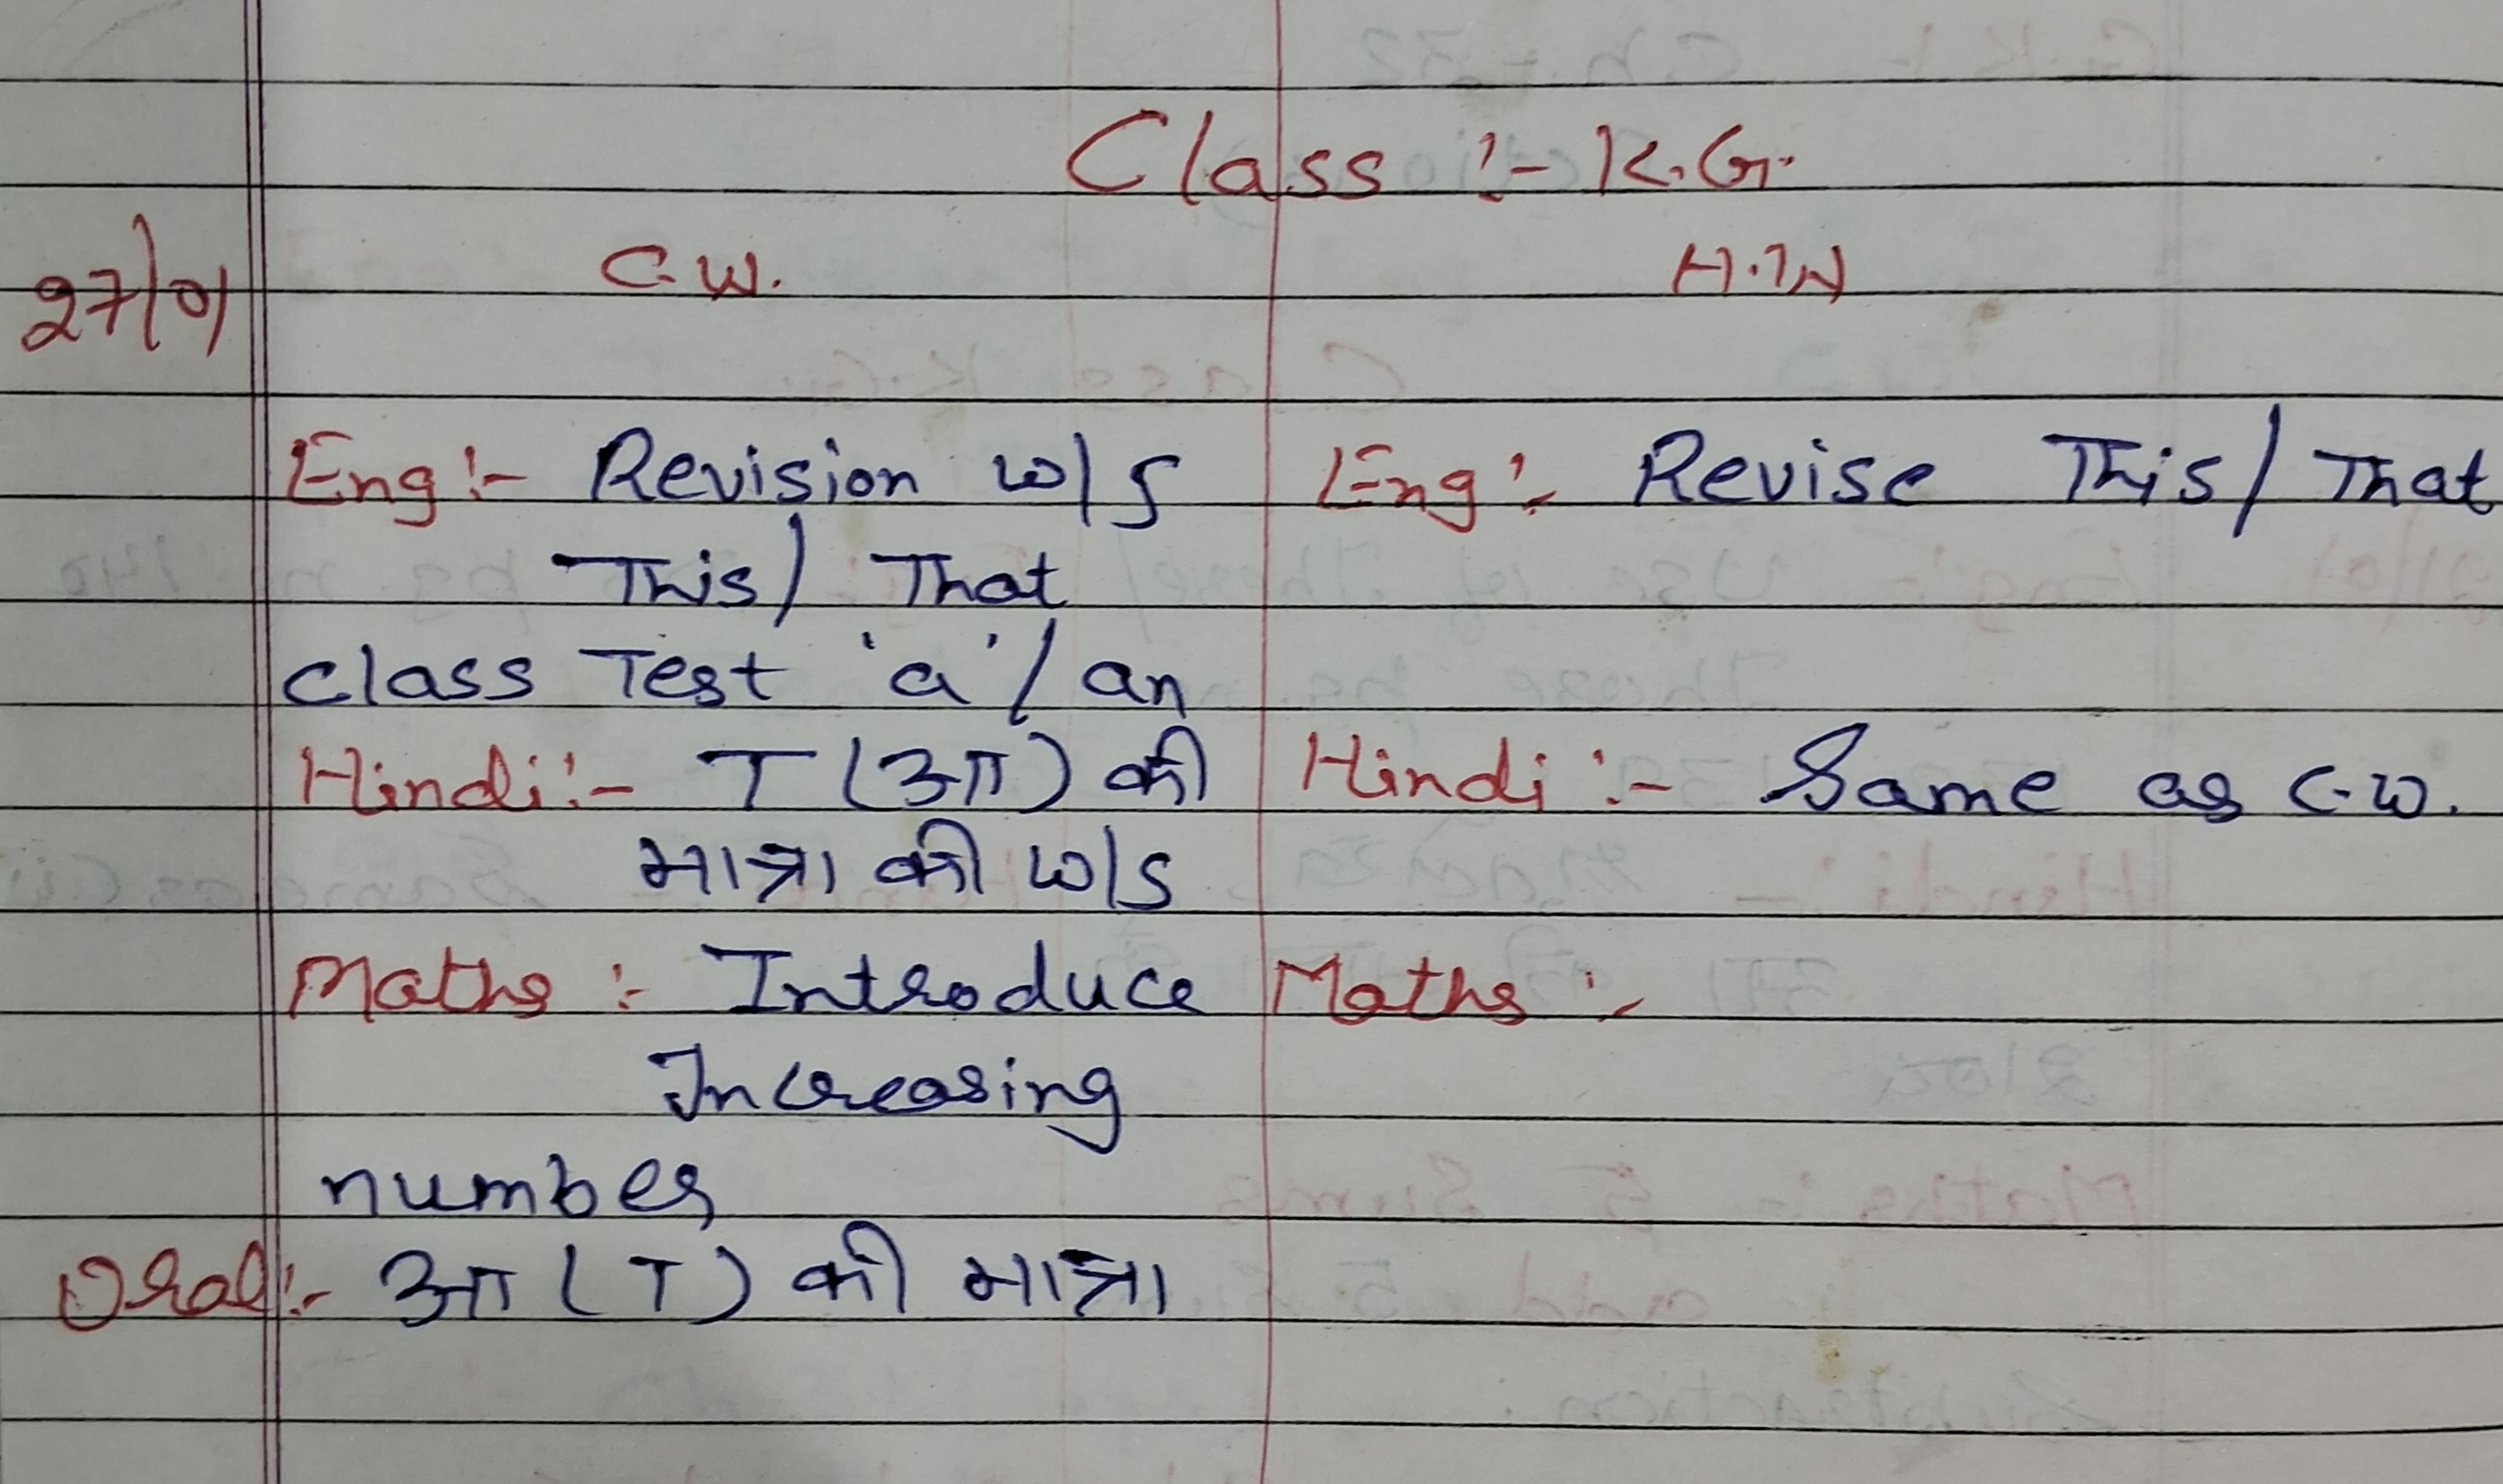 Class :- K.G.
27/01 C.W. H.W
Eng :- Revision w/s
This / That
class Test 'a' / an
Hindi :- ा (आ) की
मात्रा की w/s
Maths :- Introduce
Increasing
number
Oral :- आ (ा) की मात्रा
Eng :- Revise This / That
Hindi :- Same as C.W.
Maths :-